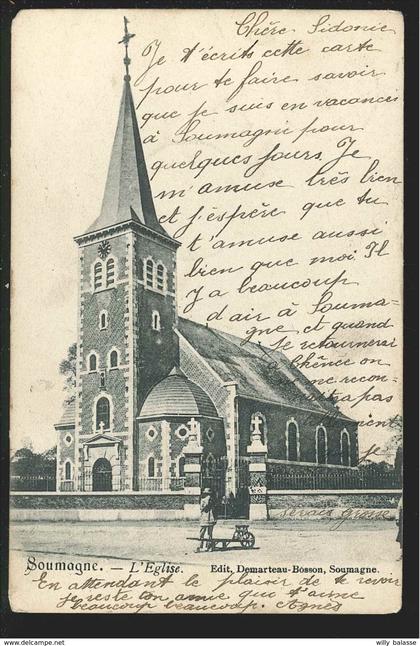 Chère Sidonie
Je t'écrits cette carte
pour te faire savoir
que je suis en vacances
à Soumagne pour
quelques jours. Je
m'amuse très bien
et j'espère que tu
t'amuse aussi
bien que moi. Il
y a beaucoup
d'air à Souma-
gne et quand
je retournerai
à Chênée on
ne me recon-
naîtra pas
tellement je
serais grosse
Soumagne. — L'Eglise. Edit. Demarteau-Bosson, Soumagne.
En attendant le plaisir de te revoir
je reste ton amie qui t'aime
beaucoup beaucoup. Agnès
www.delcampe.net
my-lalbasse